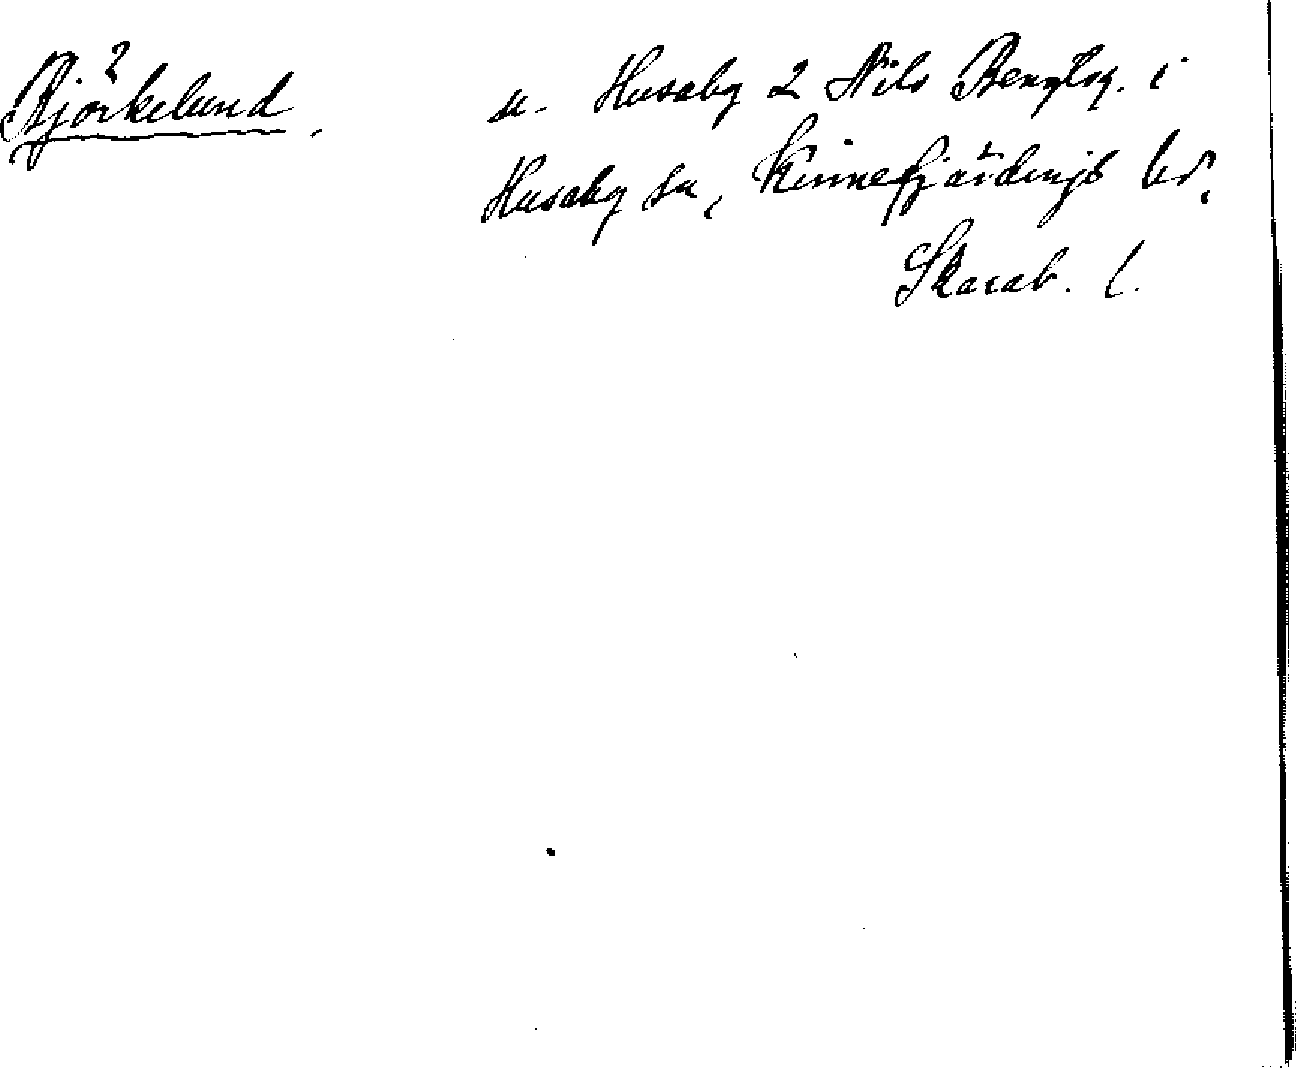 Björkelund, u. Husaby 2 Nils Bengtsg. i
Husaby sn, Kinnefjärdings hd,
Skarab. l.